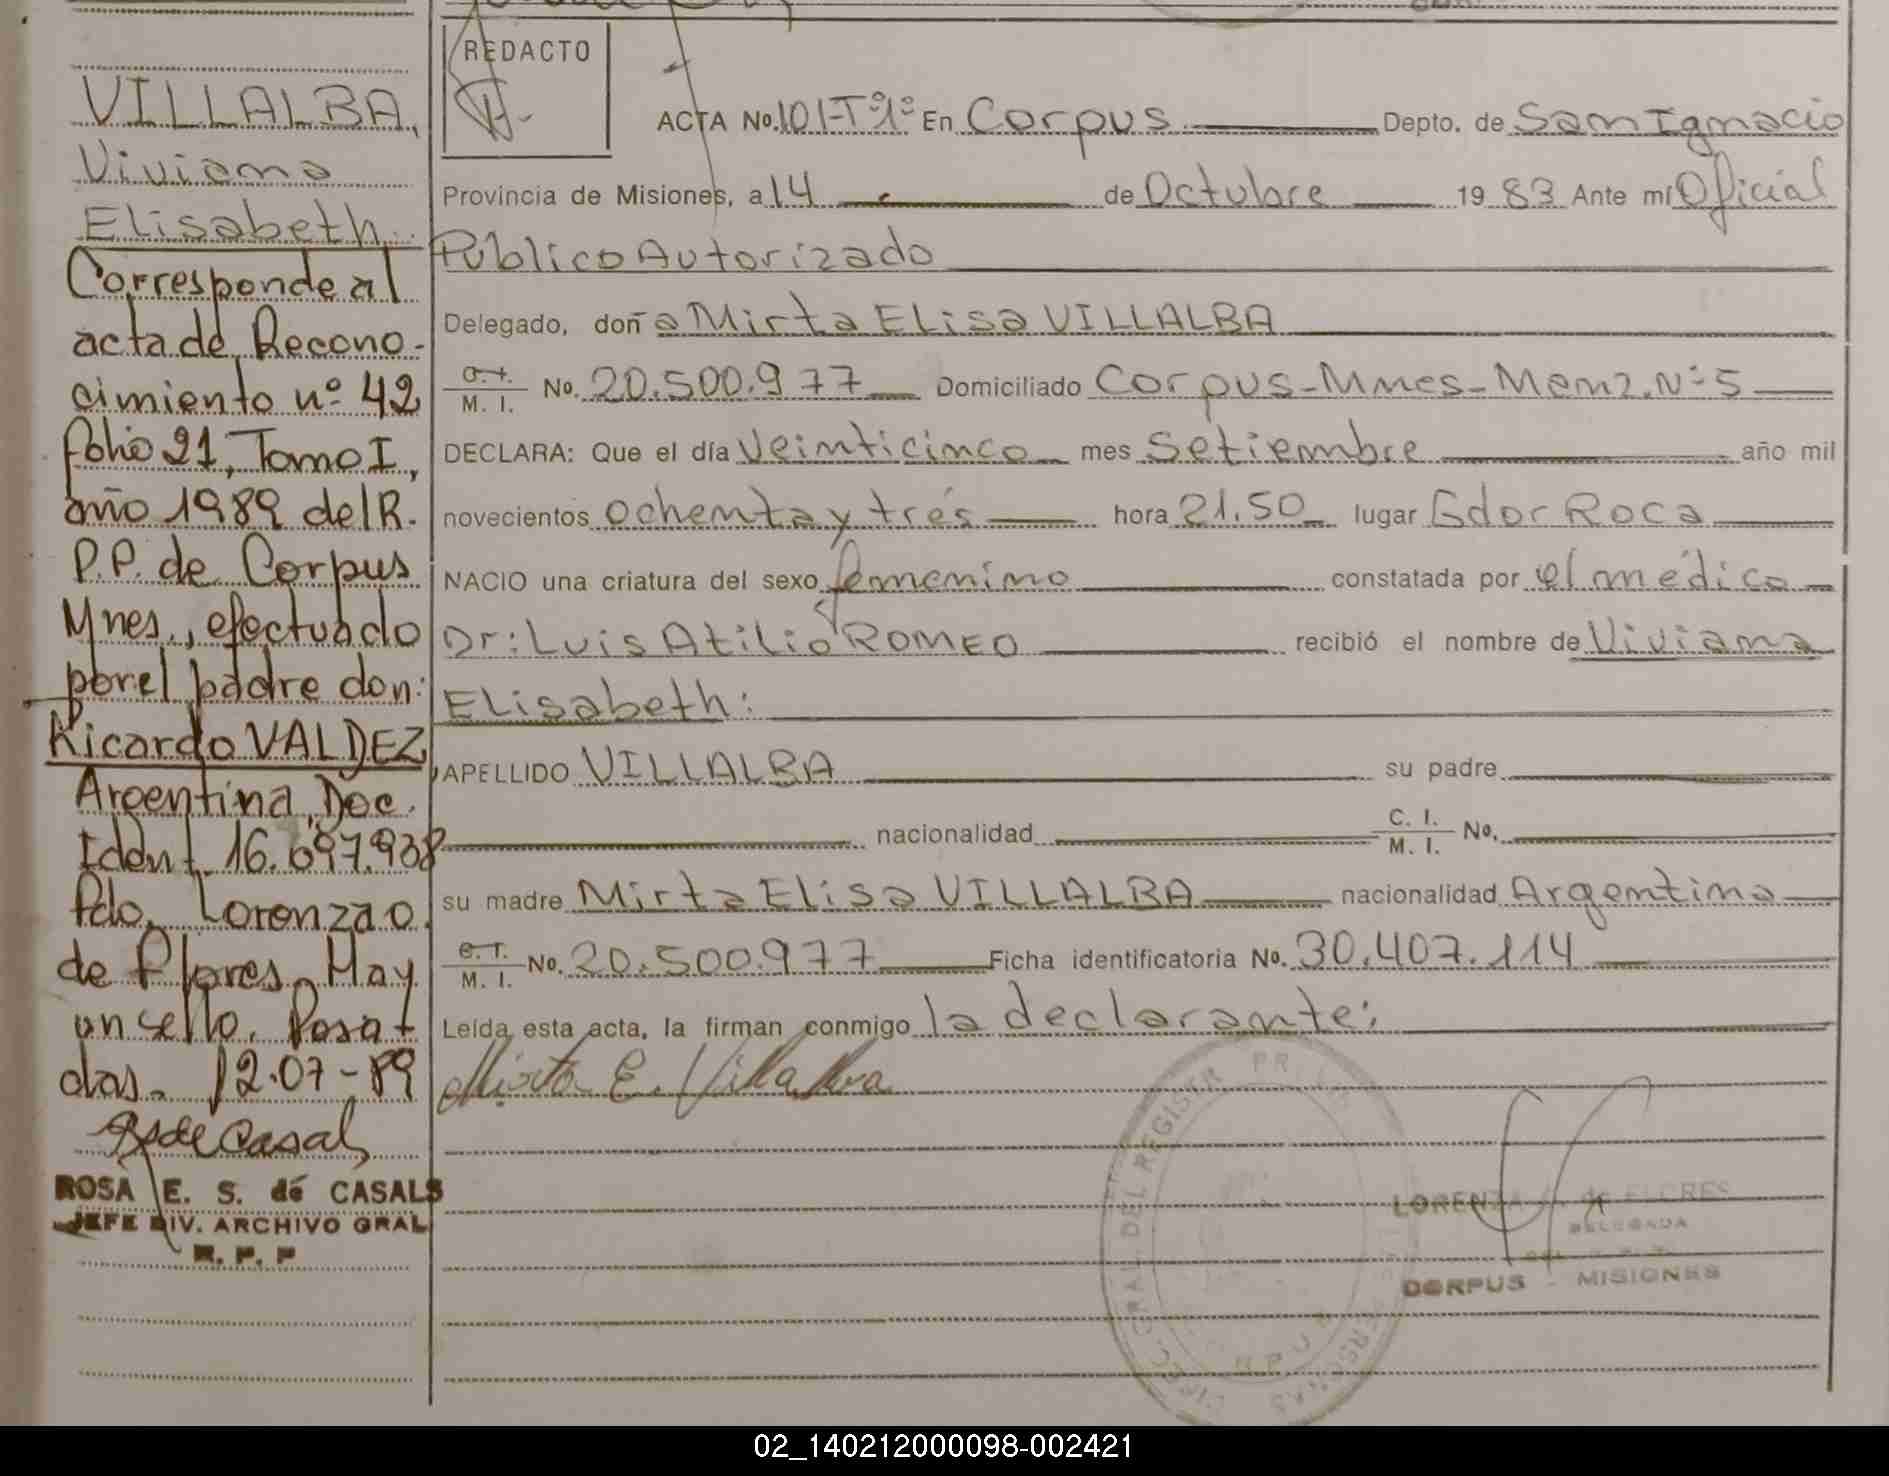 VILLALBA,
Viviana
Elisabeth:
Corresponde al
acta de Recono-
cimiento nº 42
folio 21, Tomo I,
año 1989 del R.
P.P. de Corpus
Mnes., efectuado
por el padre don:
Ricardo VALDEZ,
Argentina, Doc.
Ident. 16.697.938
Fdo. Lorenza O.
de Flores. Hay
un sello. Posa-
das. 12-07-89
ROSA E. S. de CASALS
JEFE DIV. ARCHIVO GRAL
R. P. P
REDACTO
ACTA No. 101-Tº1º En Corpus Depto. de San Ignacio
Provincia de Misiones, a 14 de Octubre 19 83 Ante mí Oficial
Público Autorizado
Delegado, doña Mirta Elisa VILLALBA
M. I. No. 20.500.977 Domiciliado Corpus-Mnes-Menz. Nº 5
DECLARA: Que el día Veinticinco mes Setiembre año mil
novecientos ochenta y trés hora 21.50 lugar Gdor Roca
NACIO una criatura del sexo femenino constatada por el médico
Dr: Luis Atilio ROMEO recibió el nombre de Viviana
Elisabeth:
APELLIDO VILLALBA su padre
nacionalidad C. I. M. I. No.
su madre Mirta Elisa VILLALBA nacionalidad Argentina
C. I. M. I. No. 20.500.977 Ficha identificatoria No. 30.407.114
Leída esta acta, la firman conmigo la declarante:
Mirta E. Villalba
LORENZA O. de FLORES
DELEGADA
CORPUS - MISIONES
02_140212000098-002421